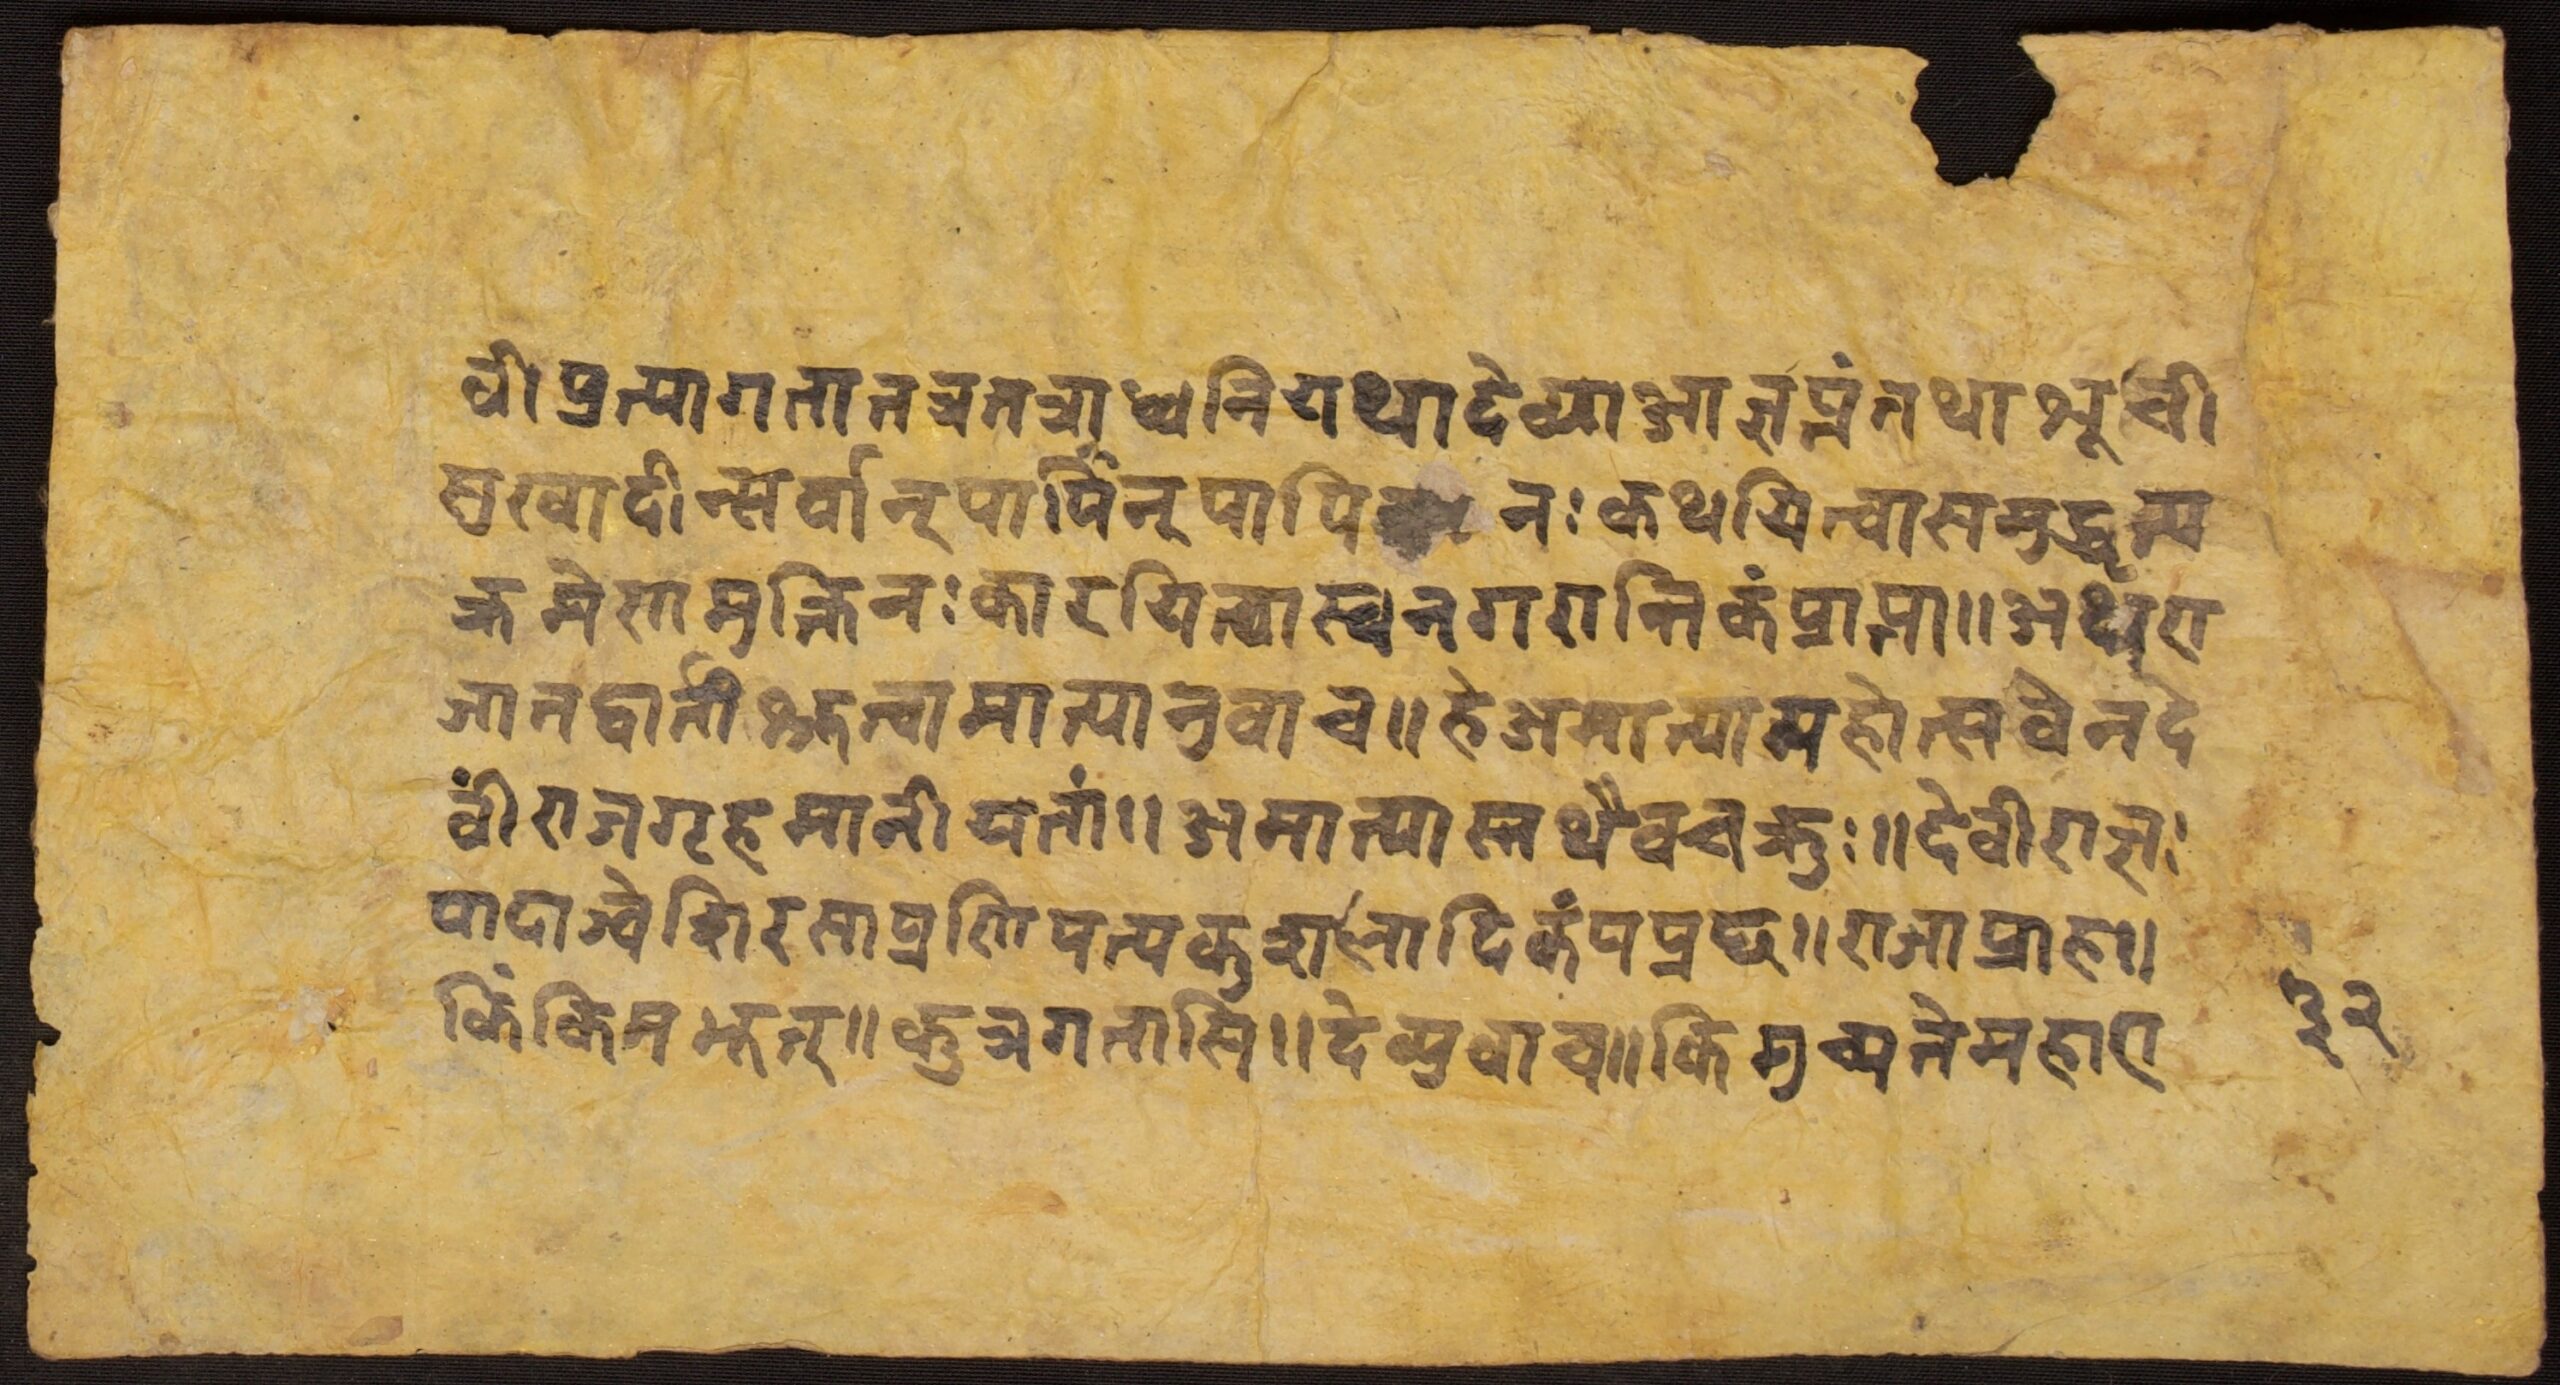 वी। प्रत्यागता तत्र तत्राध्वनि यथा देव्या आज्ञप्तं तथा भूची
मुखादीन्सर्वान् पापिन् पापि नः कथयित्वा समुद्धृत्य
क्रमेसा मुक्तिनः कारयित्वा स्वनगरान्तिकं प्राप्ता॥ अथ रा
जा तद्वार्तां श्रुत्वामात्यानुवाच॥ हे अमात्या महोत्सवेन दे
वीं राजगृहमानीयतां॥ अमात्यास्तथैव चक्रुः॥ देवी राज्ञः
पादाब्जे शिरसा प्रणिपत्य कुशलादिकं पप्रच्छ॥ राजा प्राह॥
किं किमभूत्॥ कुत्र गतासि॥ देव्युवाच॥ किमुच्यते महारा
३२